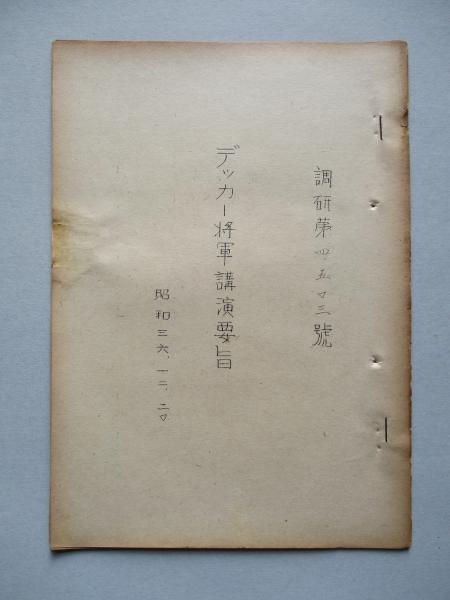 調研第四五〇三號
デッカー将軍講演要旨
昭和三六、一二、二〇